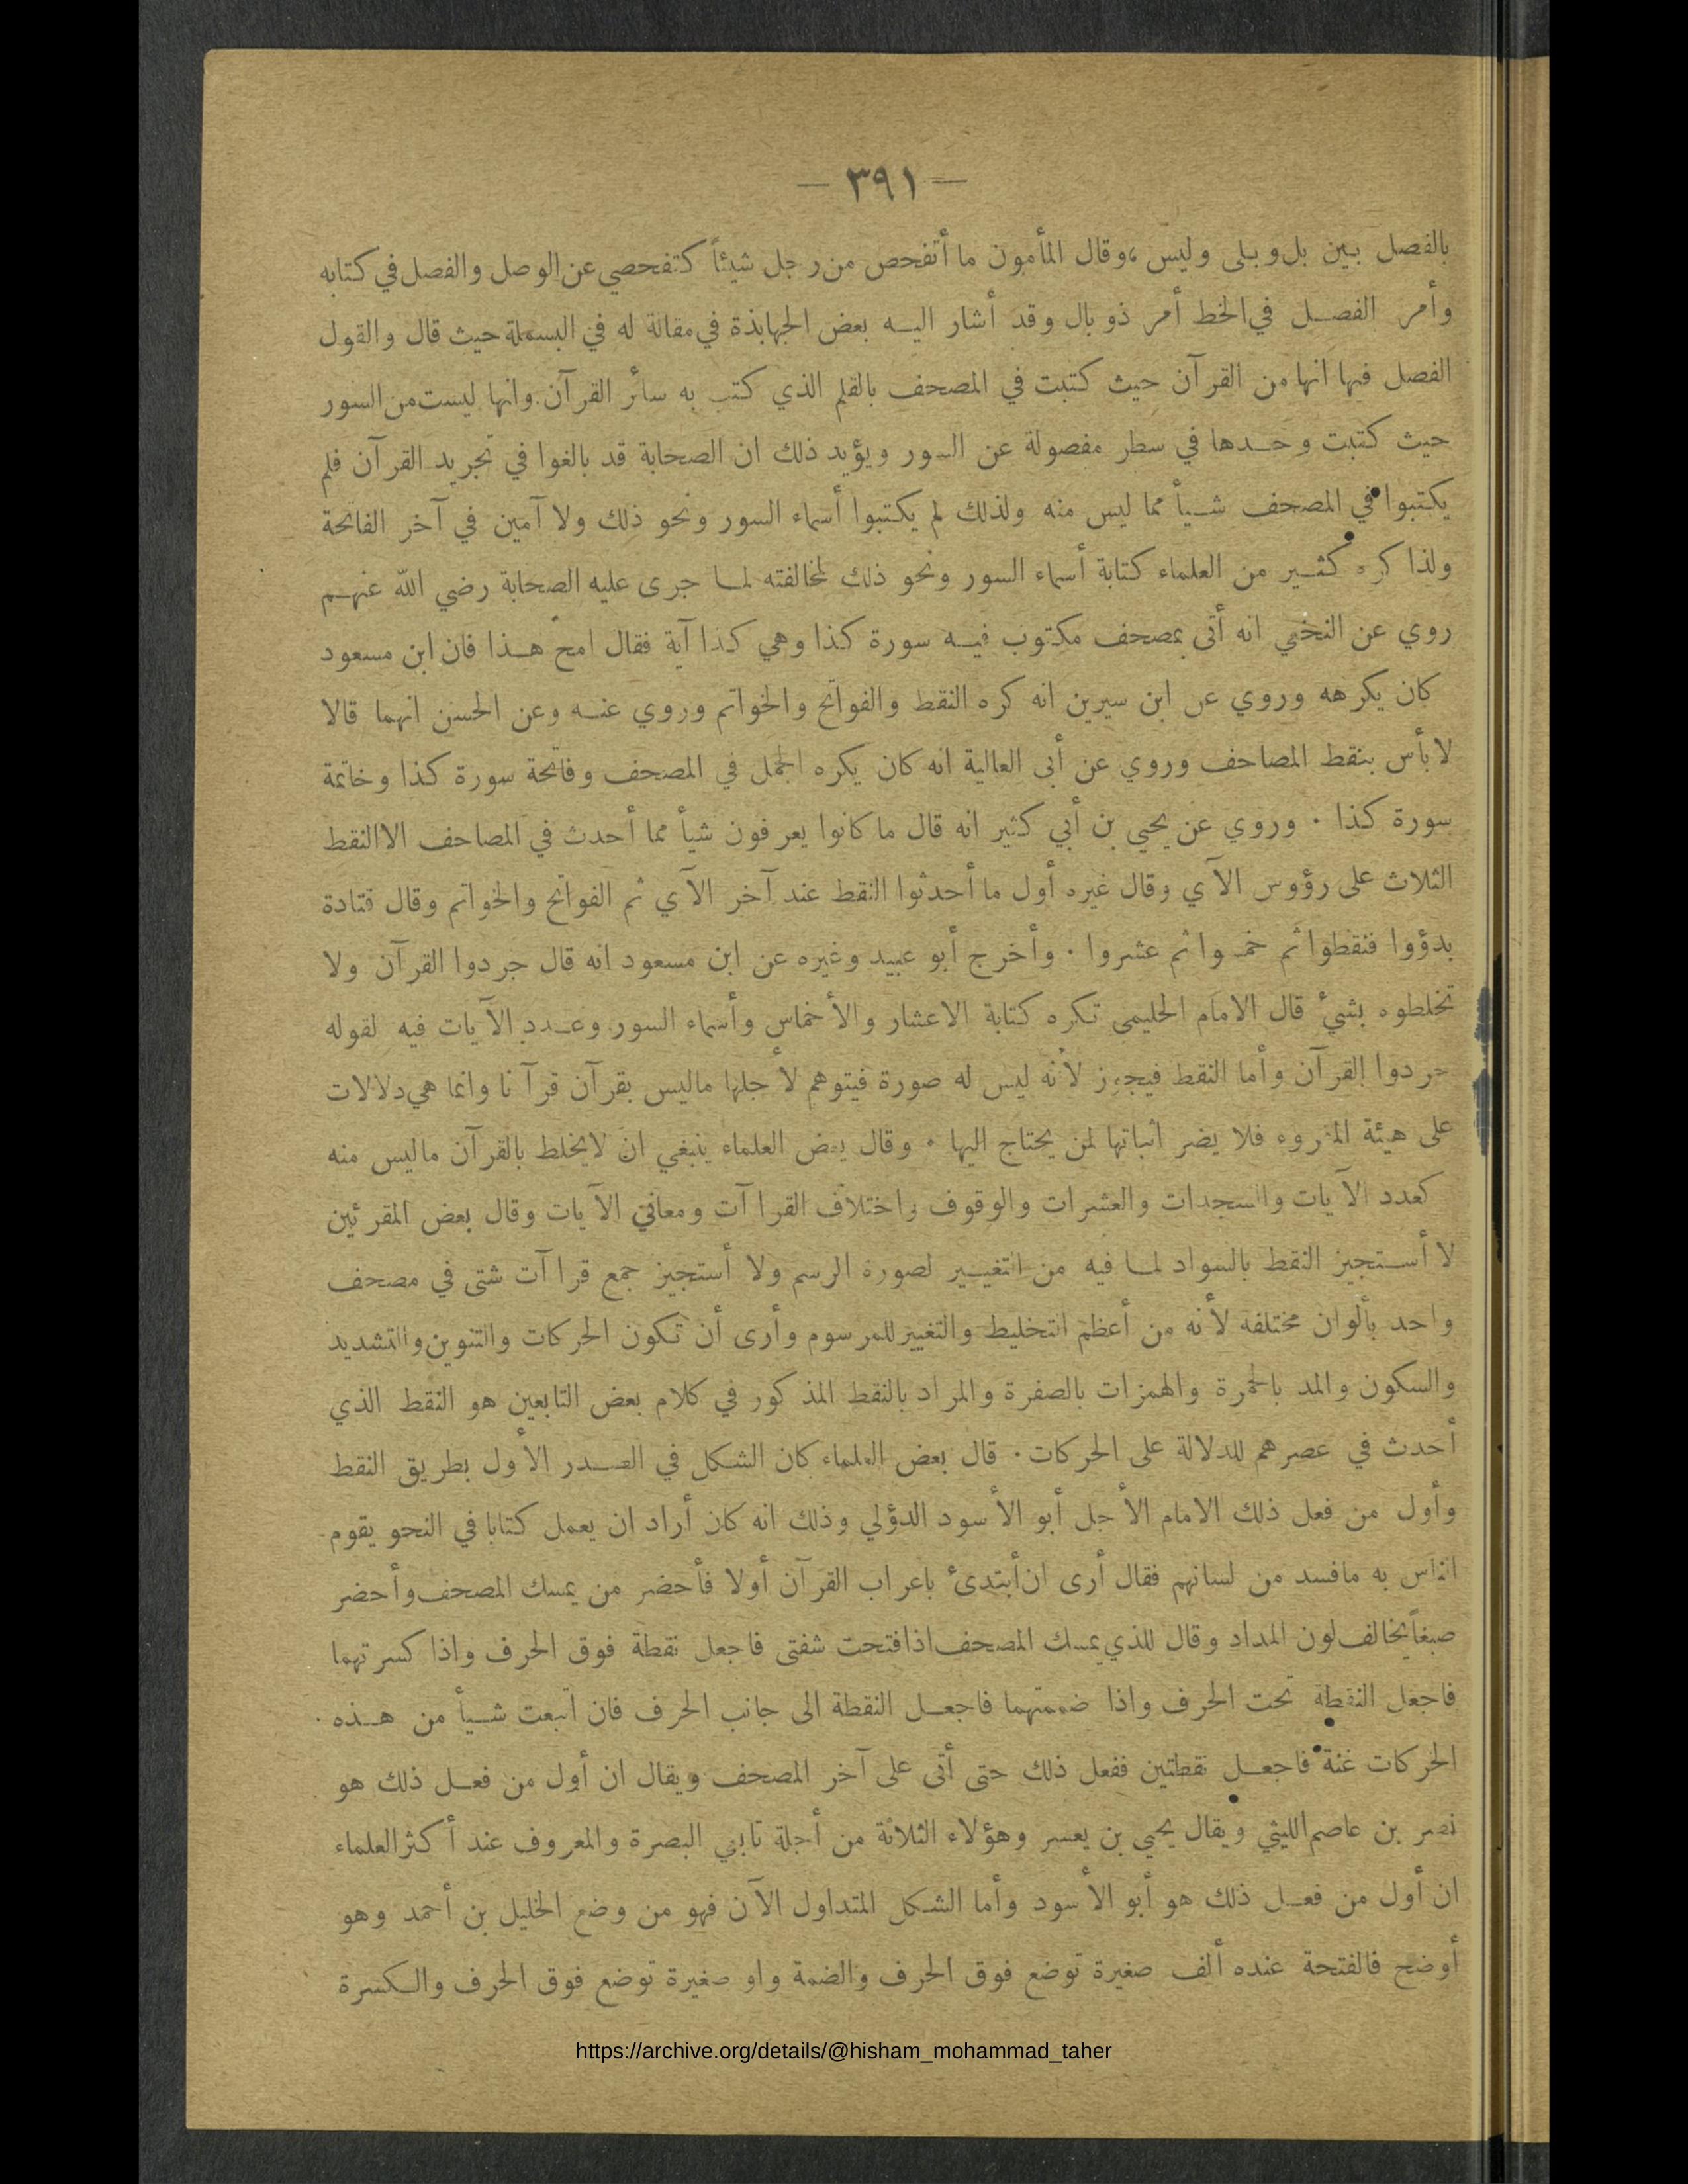 — ٣٩١ —
بالفصل بين بل وبلى وليس ، وقال المأمون ما أتفحص من رجل شيئاً كتفحصي عن الوصل والفصل في كتابه
وأمر الفصل في الخط أمر ذو بال وقد أشار اليه بعض الجهابذة في مقالة له في البسملة حيث قال والقول
الفصل فيها انها من القرآن حيث كتبت في المصحف بالقلم الذي كتب به سائر القرآن. وانها ليست من السور
حيث كتبت وحدها في سطر مفصولة عن السور ويؤيد ذلك ان الصحابة قد بالغوا في تجريد القرآن فلم
يكتبوا في المصحف شيأ مما ليس منه ولذلك لم يكتبوا أسماء السور ونحو ذلك ولا آمين في آخر الفاتحة
ولذا كره كثير من العلماء كتابة أسماء السور ونحو ذلك لمخالفته لما جرى عليه الصحابة رضي الله عنهم
روي عن النخعي انه أتى بمصحف مكتوب فيه سورة كذا وهي كذا آية فقال امح هذا فان ابن مسعود
كان يكرهه وروي عن ابن سيرين انه كره النقط والفواتح والخواتم وروي عنه وعن الحسن انهما قالا
لا بأس بنقط المصاحف وروي عن أبى العالية انه كان يكره الجمل في المصحف وفاتحة سورة كذا وخاتمة
سورة كذا ٠ وروي عن يحيى بن أبي كثير انه قال ما كانوا يعرفون شيأ مما أحدث في المصاحف الا النقط
الثلاث على رؤوس الآي وقال غيره أول ما أحدثوا النقط عند آخر الآي ثم الفواتح والخواتم وقال قتادة
بدؤوا فنقطوا ثم خمسوا ثم عشروا ٠ وأخرج أبو عبيد وغيره عن ابن مسعود انه قال جردوا القرآن ولا
تخلطوه بشيء قال الامام الحليمى تكره كتابة الاعشار والأخماس وأسماء السور وعدد الآيات فيه لقوله
جردوا القرآن وأما النقط فيجوز لأنه ليس له صورة فيتوهم لأجلها ماليس بقرآن قرآنا وانما هي دلالات
على هيئة المقروء فلا يضر اثباتها لمن يحتاج اليها ٠ وقال بعض العلماء ينبغي ان لا يخلط بالقرآن ماليس منه
كعدد الآيات والسجدات والعشرات والوقوف واختلاف القراآت ومعاني الآيات وقال بعض المقرئين
لا أستجيز النقط بالسواد لما فيه من التغيير لصورة الرسم ولا أستجيز جمع قراآت شتى في مصحف
واحد بألوان مختلفة لأنه من أعظم التخليط والتغيير للمرسوم وأرى أن تكون الحركات والتنوين والتشديد
والسكون والمد بالحمرة والهمزات بالصفرة والمراد بالنقط المذكور في كلام بعض التابعين هو النقط الذي
أحدث في عصرهم للدلالة على الحركات ٠ قال بعض العلماء كان الشكل في الصدر الأول بطريق النقط
وأول من فعل ذلك الامام الأجل أبو الأسود الدؤلي وذلك انه كان أراد ان يعمل كتابا في النحو يقوم
الناس به مافسد من لسانهم فقال أرى ان أبتدئ باعراب القرآن أولا فأحضر من يمسك المصحف وأحضر
صبغاً يخالف لون المداد وقال للذي يمسك المصحف اذا فتحت شفتى فاجعل نقطة فوق الحرف واذا كسرتهما
فاجعل النقطة تحت الحرف واذا ضممتهما فاجعل النقطة الى جانب الحرف فان اتبعت شيأ من هذه
الحركات غنة فاجعل نقطتين ففعل ذلك حتى أتى على آخر المصحف ويقال ان أول من فعل ذلك هو
نصر بن عاصم الليثي ويقال يحيى بن يعمر وهؤلاء الثلاثة من أجلة تابعي البصرة والمعروف عند أكثر العلماء
ان أول من فعل ذلك هو أبو الأسود وأما الشكل المتداول الآن فهو من وضع الخليل بن أحمد وهو
أوضح فالفتحة عنده ألف صغيرة توضع فوق الحرف والضمة واو صغيرة توضع فوق الحرف والكسرة
https://archive.org/details/@hisham_mohammad_taher